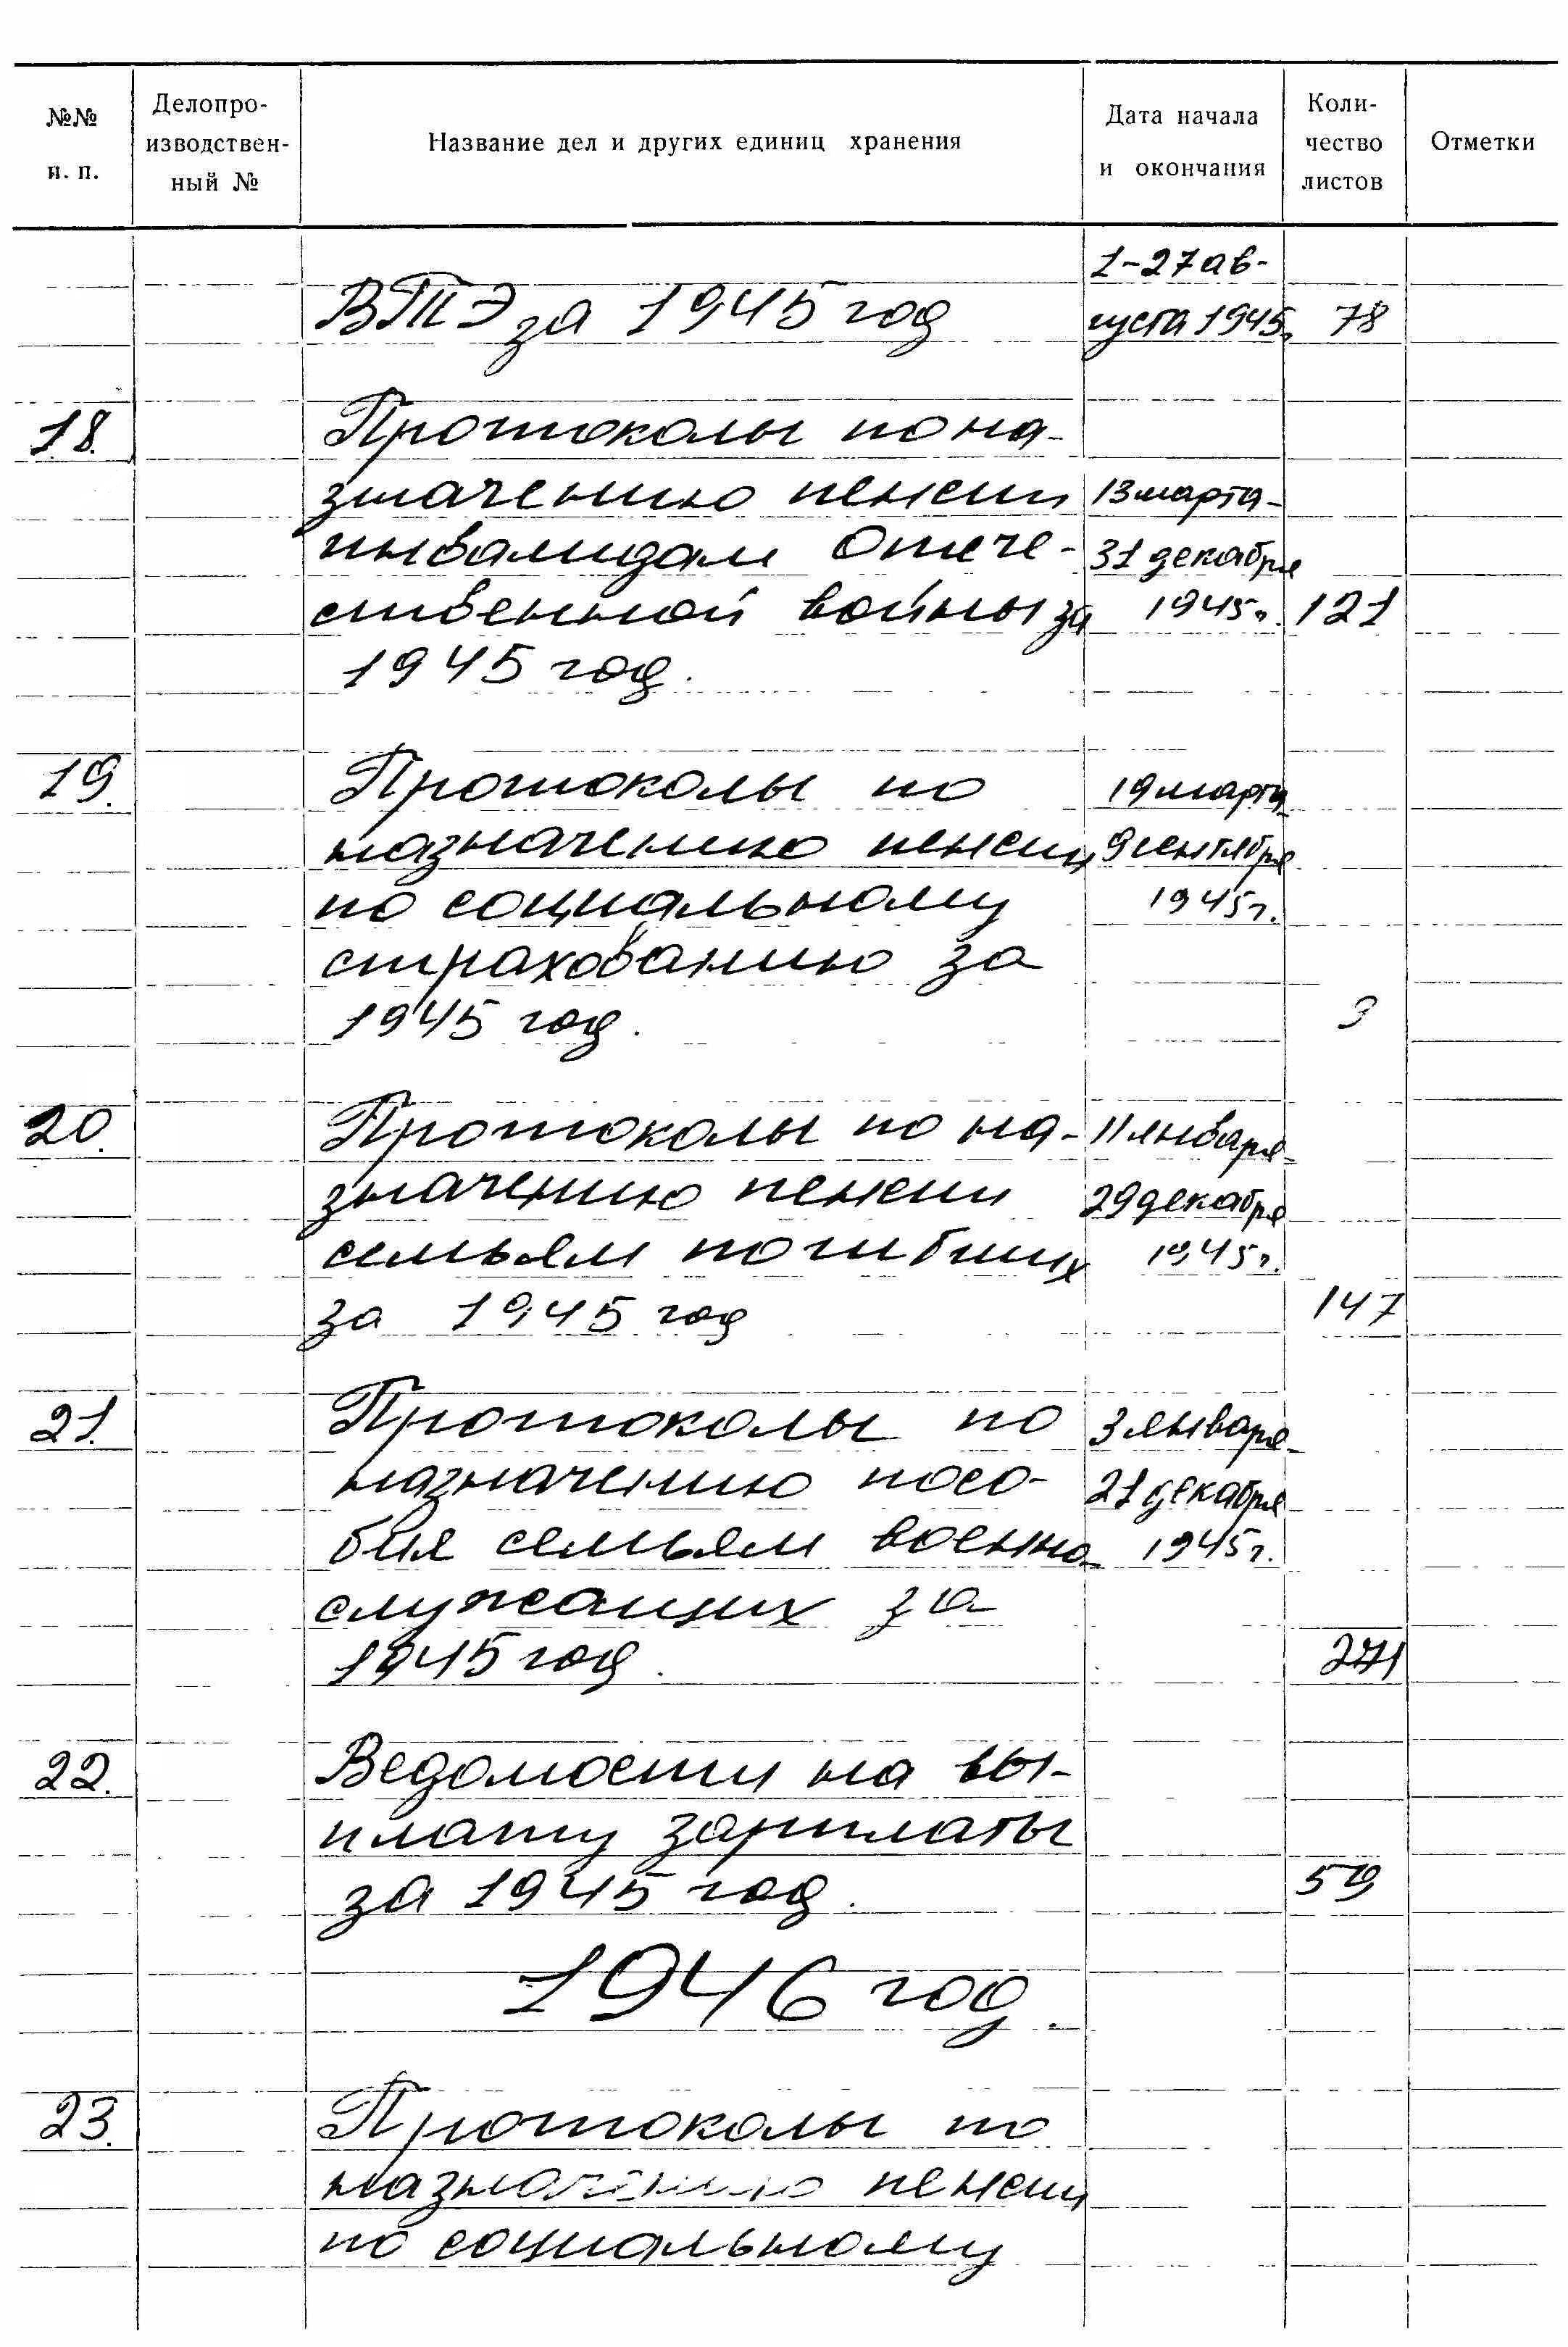 №№ п. п. Делопроизводственный № Название дел и других единиц хранения Дата начала и окончания Количество листов Отметки
1-27 ав-
ВТЭ за 1945 год густа 1945г. 78
18. Протоколы по на-
значению пенсии 13 марта-
инвалидам Отече- 31 декабря
ственной войны за 1945г. 121
1945 год.
19. Протоколы по 19 марта-
назначению пенсии 9 сентября
по социальному 1945г.
страхованию за
1945 год. 3
20. Протоколы по на- 11 января-
значению пенсии 29 декабря
семьям погибших 1945г.
за 1945 год 147
21. Протоколы по 3 января-
назначению посо- 21 декабря
бия семьям военно- 1945г.
служащих за
1945 год. 271
22. Ведомости на вы-
плату зарплаты
за 1945 год. 59
1946 год.
23. Протоколы по
назначению пенсии
по социальному